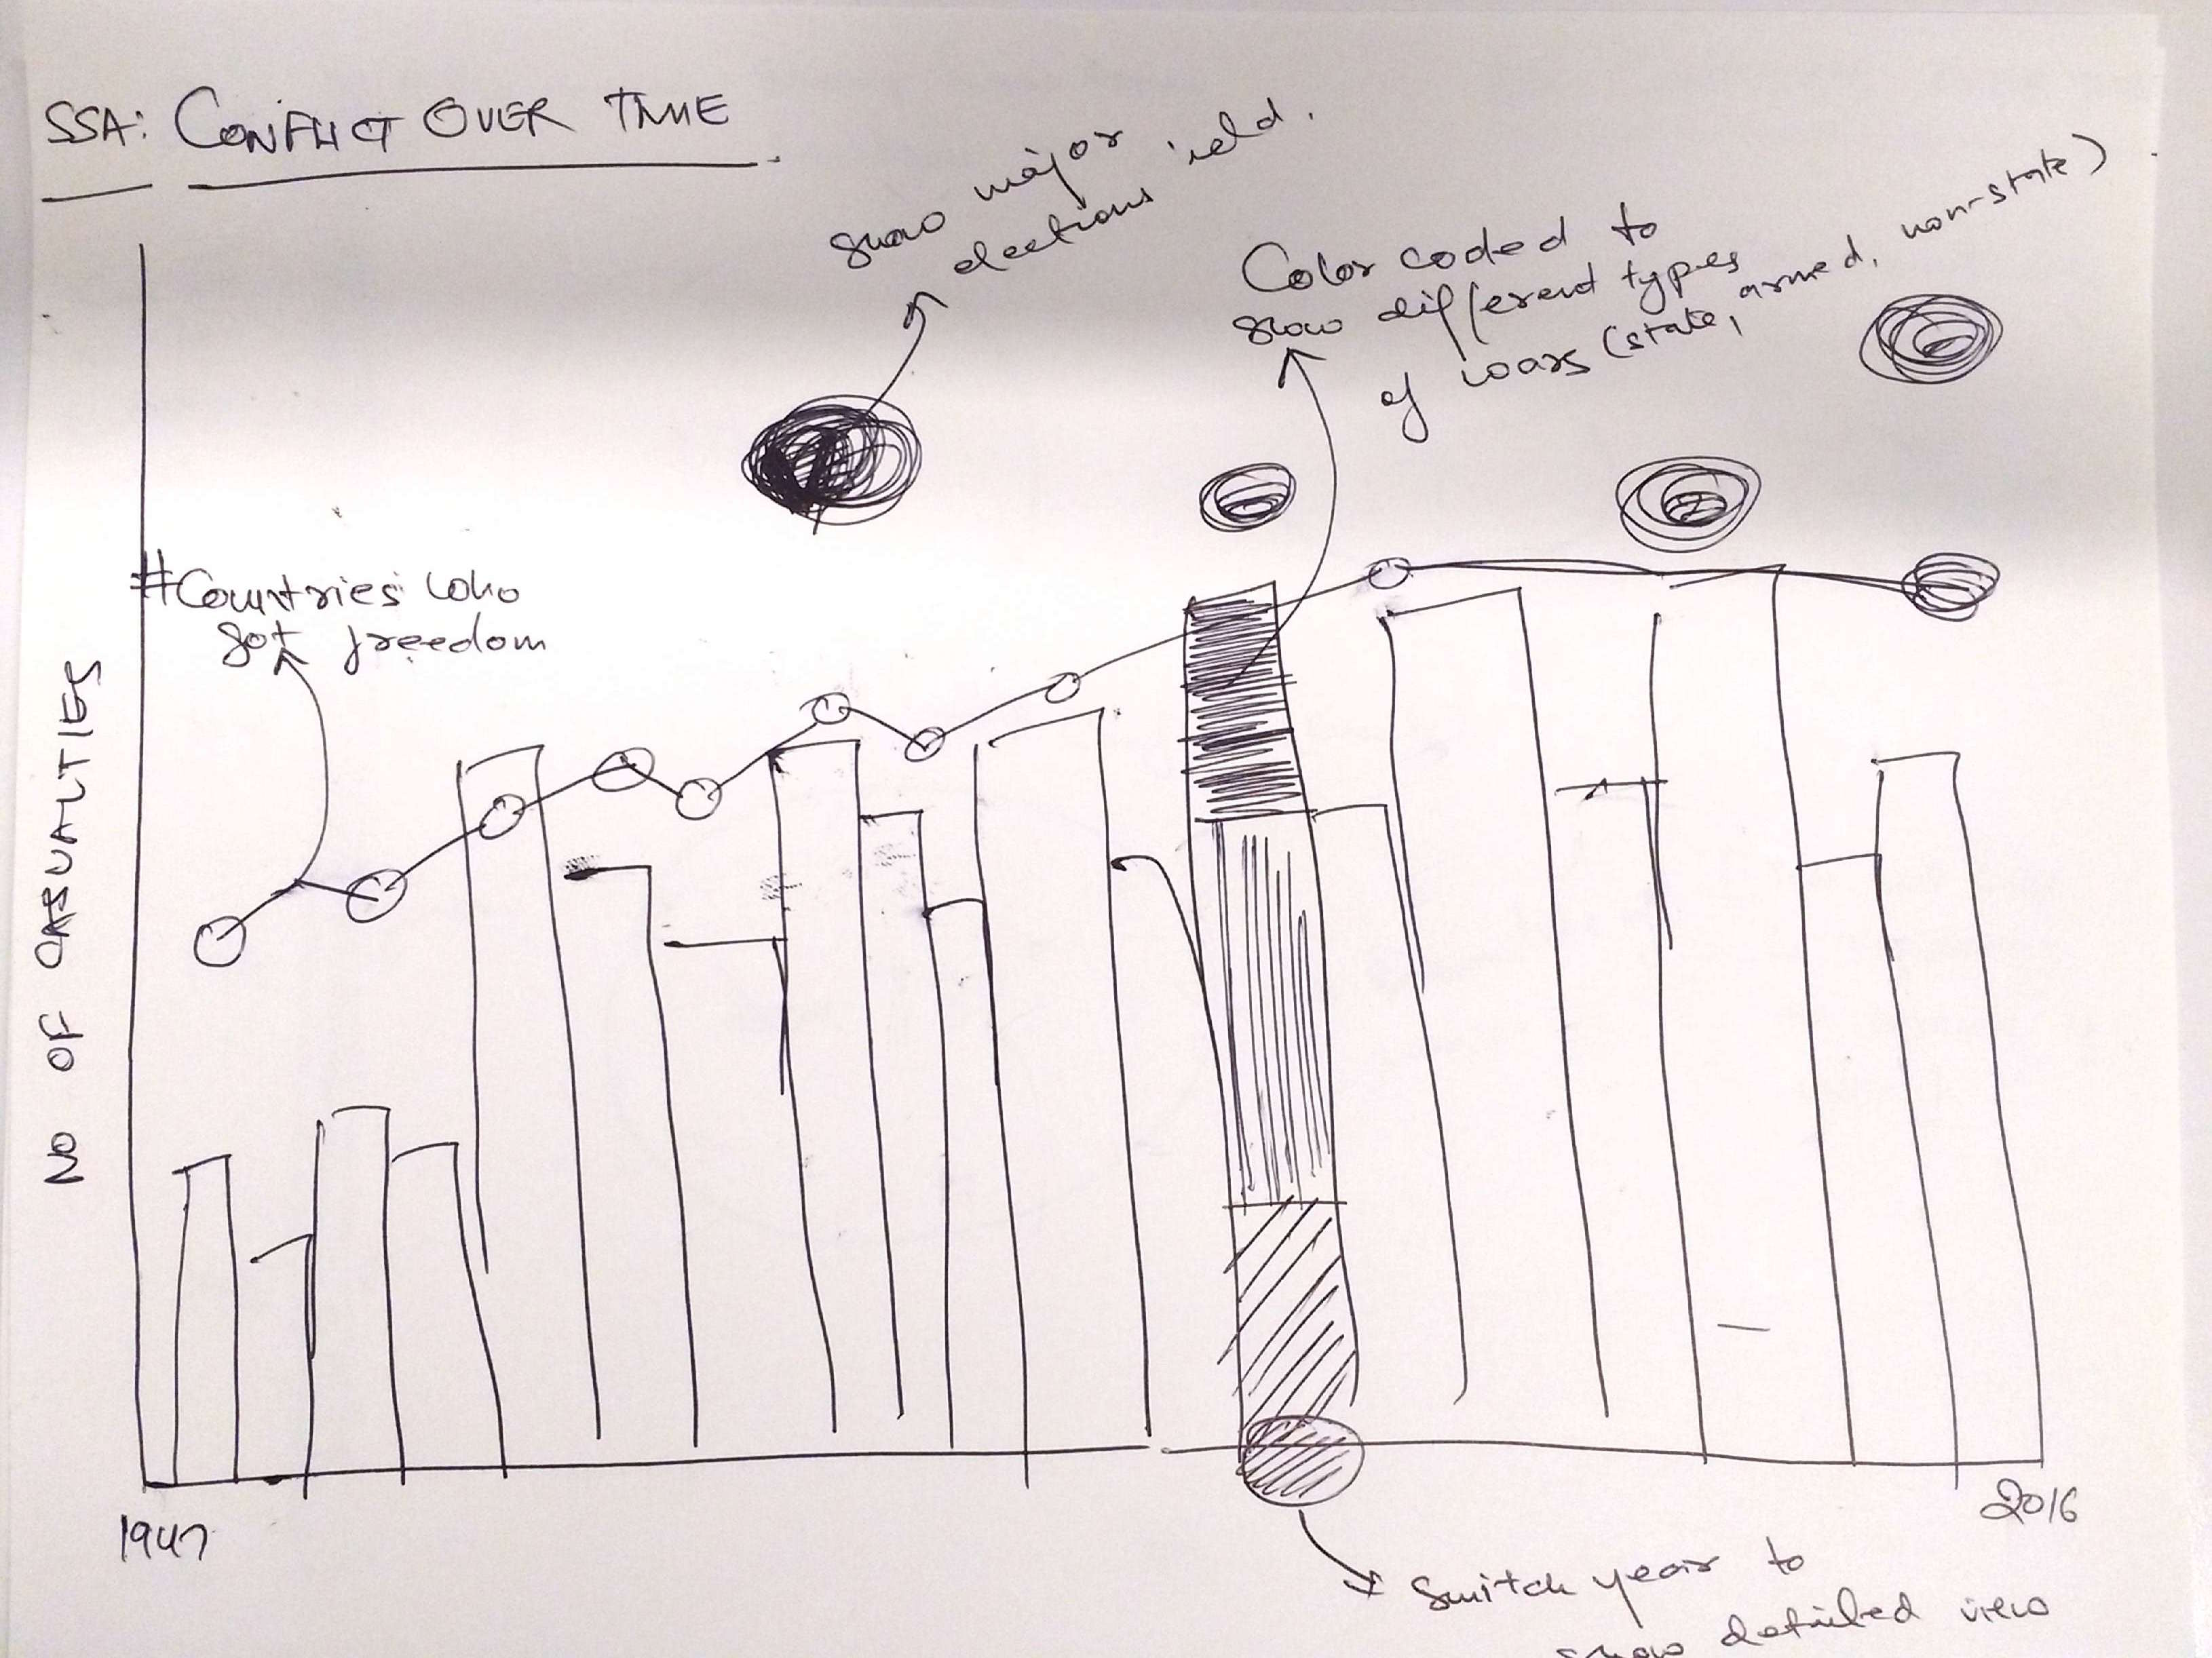 SSA: CONFLICT OVER TIME
show major
elections held.
Color coded to
show different types
of wars (state, armed, non-state)
#Countries who
got freedom
NO OF CASUALTIES
1947
2016
Switch year to
show detailed view